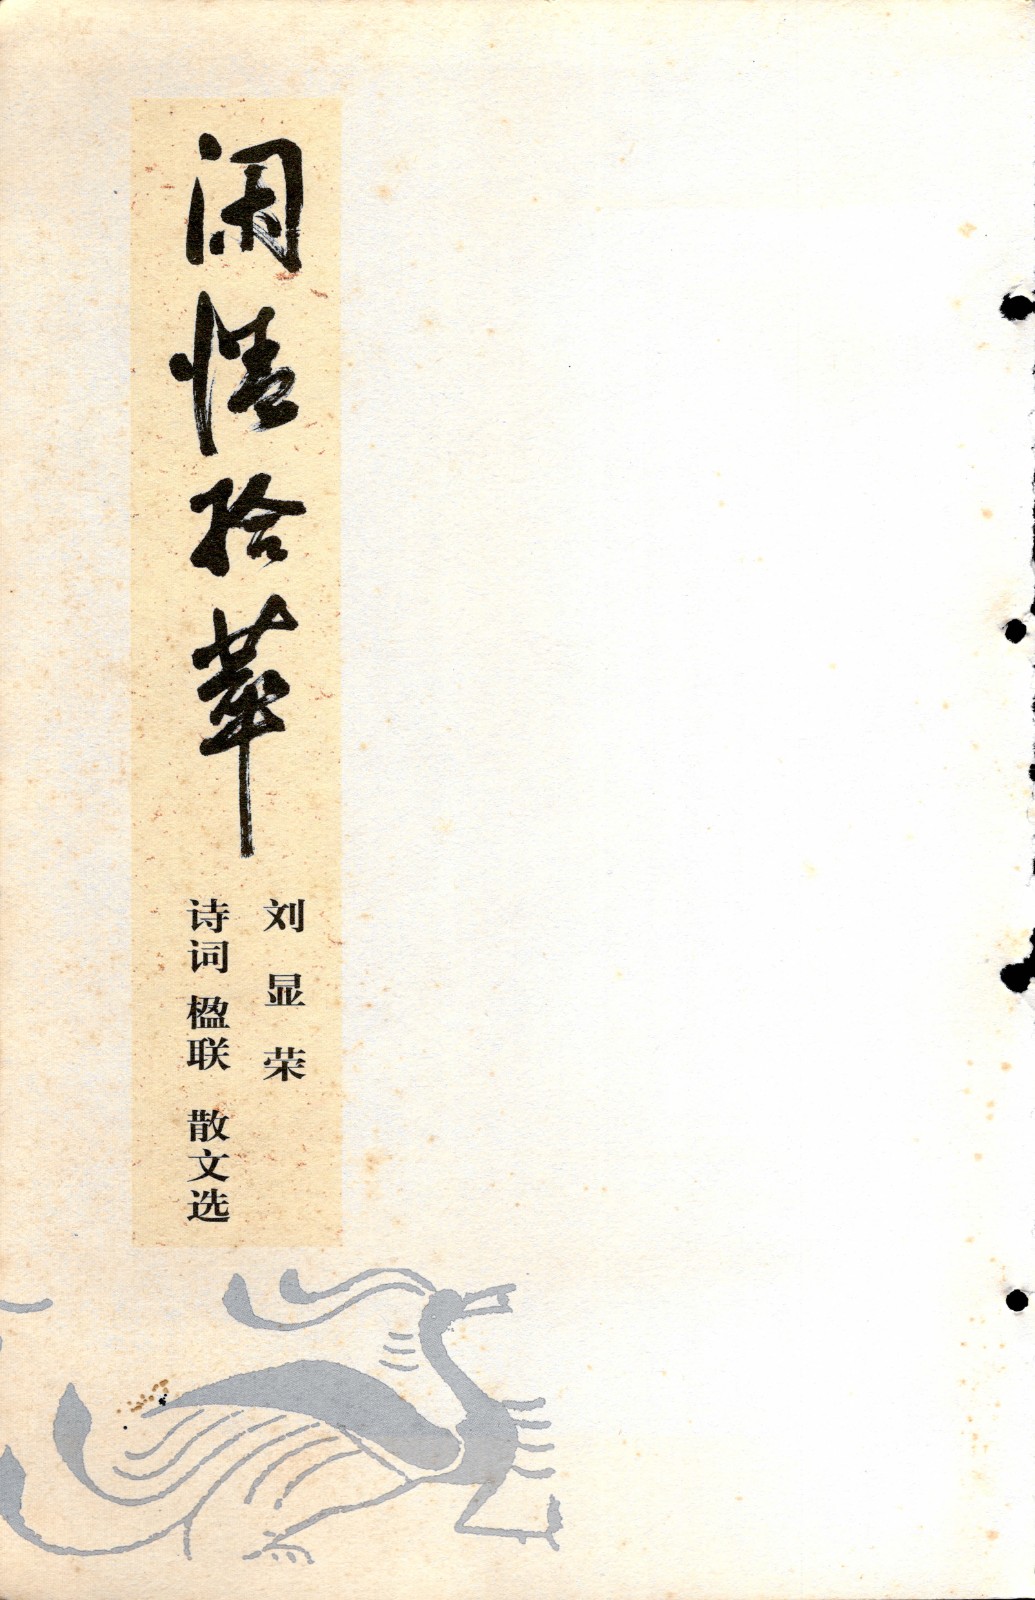 闲情拾萃
刘显荣
诗词 楹联 散文选